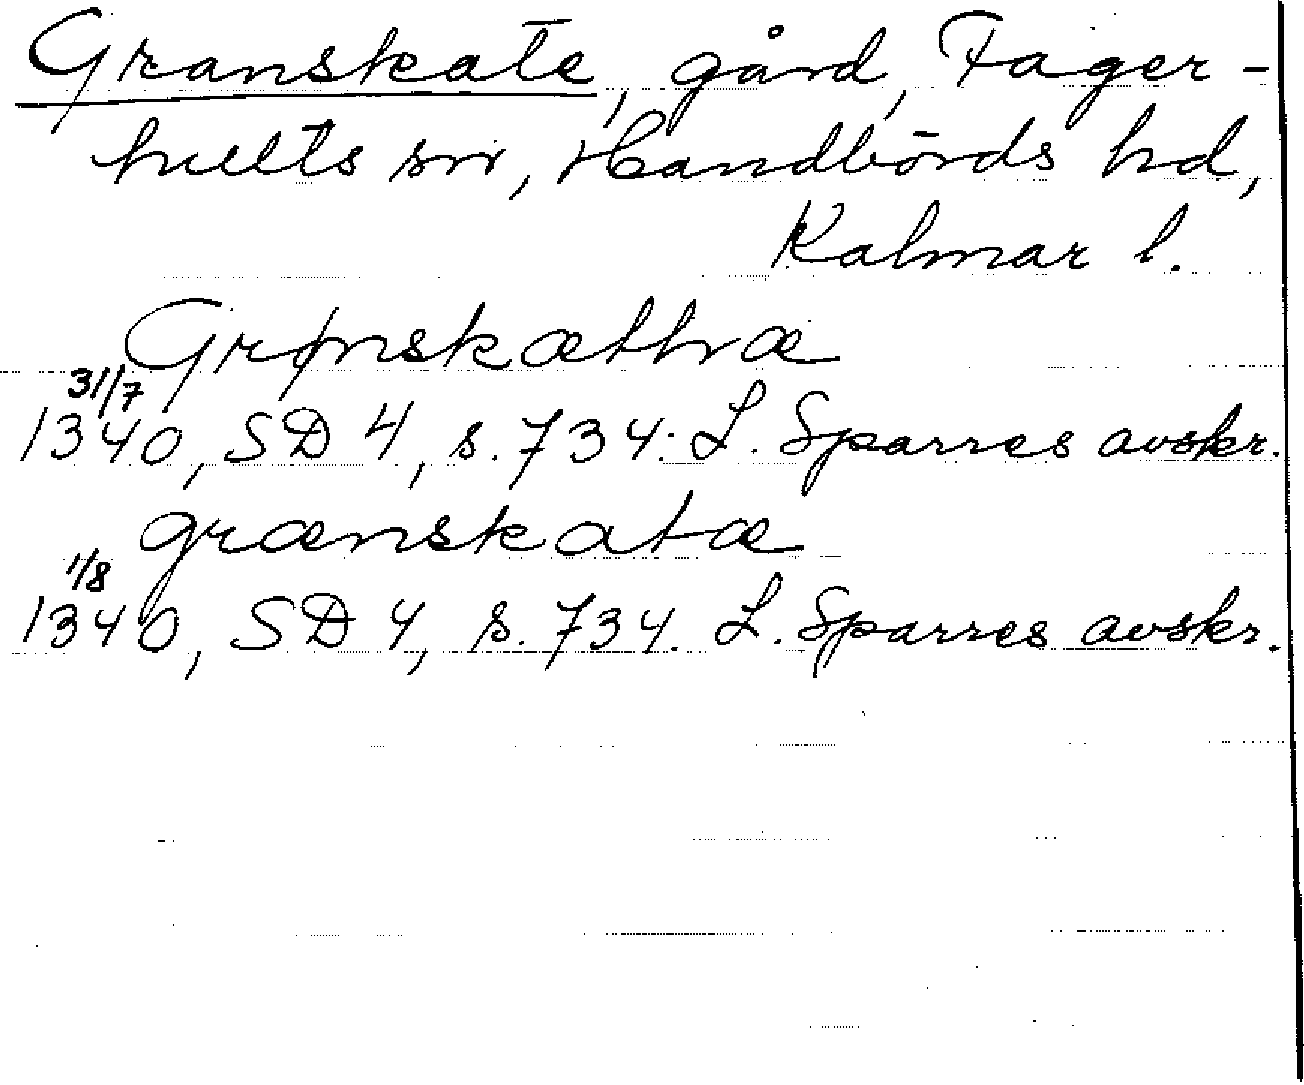 Granskate, gård, Fager-
hults sn, Handbörds hd,
Kalmar l.
Grønskæthræ
31/7
1340, SD 4, s. 734. L. Sparres avskr.
grænskatæ
1/8
1340, SD 4, s. 734. L. Sparres avskr.